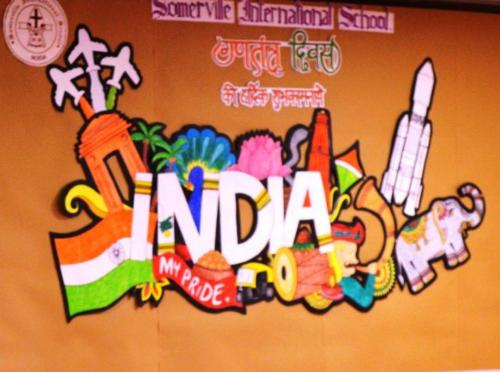 Somerville International School
गणतंत्र दिवस
की हार्दिक शुभकामनाएं
INDIA
MY PRIDE.